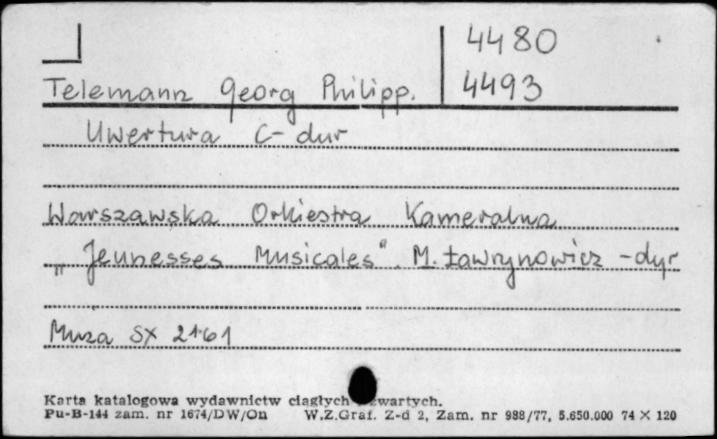 4480
Telemann Georg Philipp. 4493
Uwertura C-dur
Warszawska Orkiestra Kameralna
„Jeunesses Musicales". M. Ławrynowicz - dyr
Muza SX 2161
Karta katalogowa wydawnictw ciągłych zwartych.
Pu-B-144 zam. nr 1674/DW/On W.Z.Graf. Z-d 2, Zam. nr 988/77, 5.650.000 74 X 120